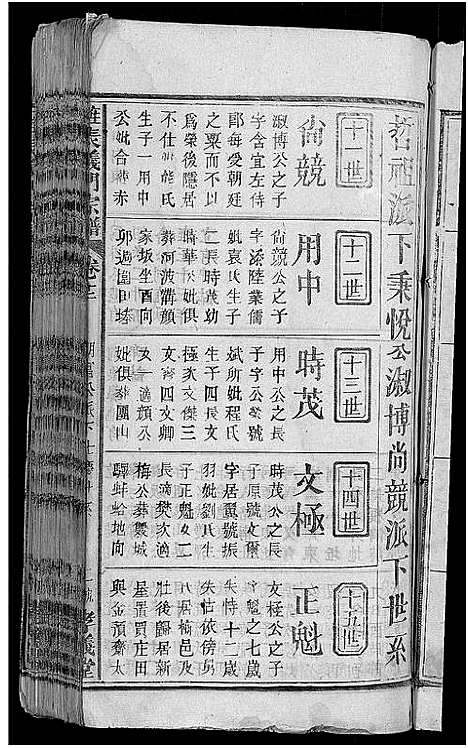 哲祖派下秉悅公淑博尚競派下世系
十一世
尚競
淑博公之子
字含宜左侍
郎每愛朝廷
之粟而不以
為榮後隱居
不仕妣龍氏
生子一用中
公妣合葬赤
十二世
用中
尚競公之子
字漆陸業儒
妣袁氏生子
二長時茂幼
時華公妣俱
葬河波溝顏
家坂坐酉向
卯過園田
十三世
時茂
用中公之長
子字公業號
斌所妣程氏
生子四長文
極次文傑三
文帝四文卿
女一適顏公
妣俱葬團山
十四世
文極
時茂公之長
子原號文
字居翼號振
羽妣劉氏生
子正魁女二
長適樊次適
梅公葬義城
驛蚌蛤地向
十五世
正魁
文極公之子
文魁之七歲
失恃十二歲
失怙依傍舅
八居楡邑及
壯後歸居新
屋置買庄田
與金預齋太
義門宗譜
卷之二
孝義堂